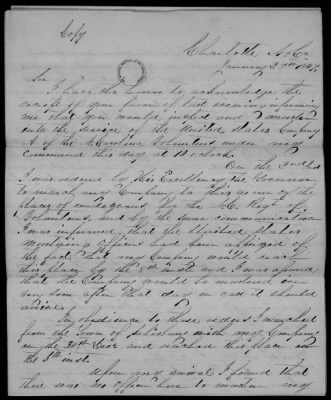 Copy
Charlotte N. Ca
January 27th 1847
Sir
I have the honor to acknowledge the
receipt of your favor of last evening informing
me that you would inspect and muster
into the service of the United States Company
A of the N. Carolina Volunteers under my
command this day at 10 o'clock.
On the
I was ordered by His Excellency the Governor
to march my Company to this, one of the
places of rendezvous for the N.C. Regt. of
Volunteers, and by the same communication
I was informed, that the United States
mustering officer had been apprized of
the fact that my Company would reach
this place by the 5th inst. and I was assured
that the Company would be mustered in
very soon after that day in case it should
arrive.
In obedience to these orders I marched
from the Town of Salisbury with my Company
on the Dec. and reached this place on
the 5th inst.
Upon my arrival I found that
there was no officer here to muster my